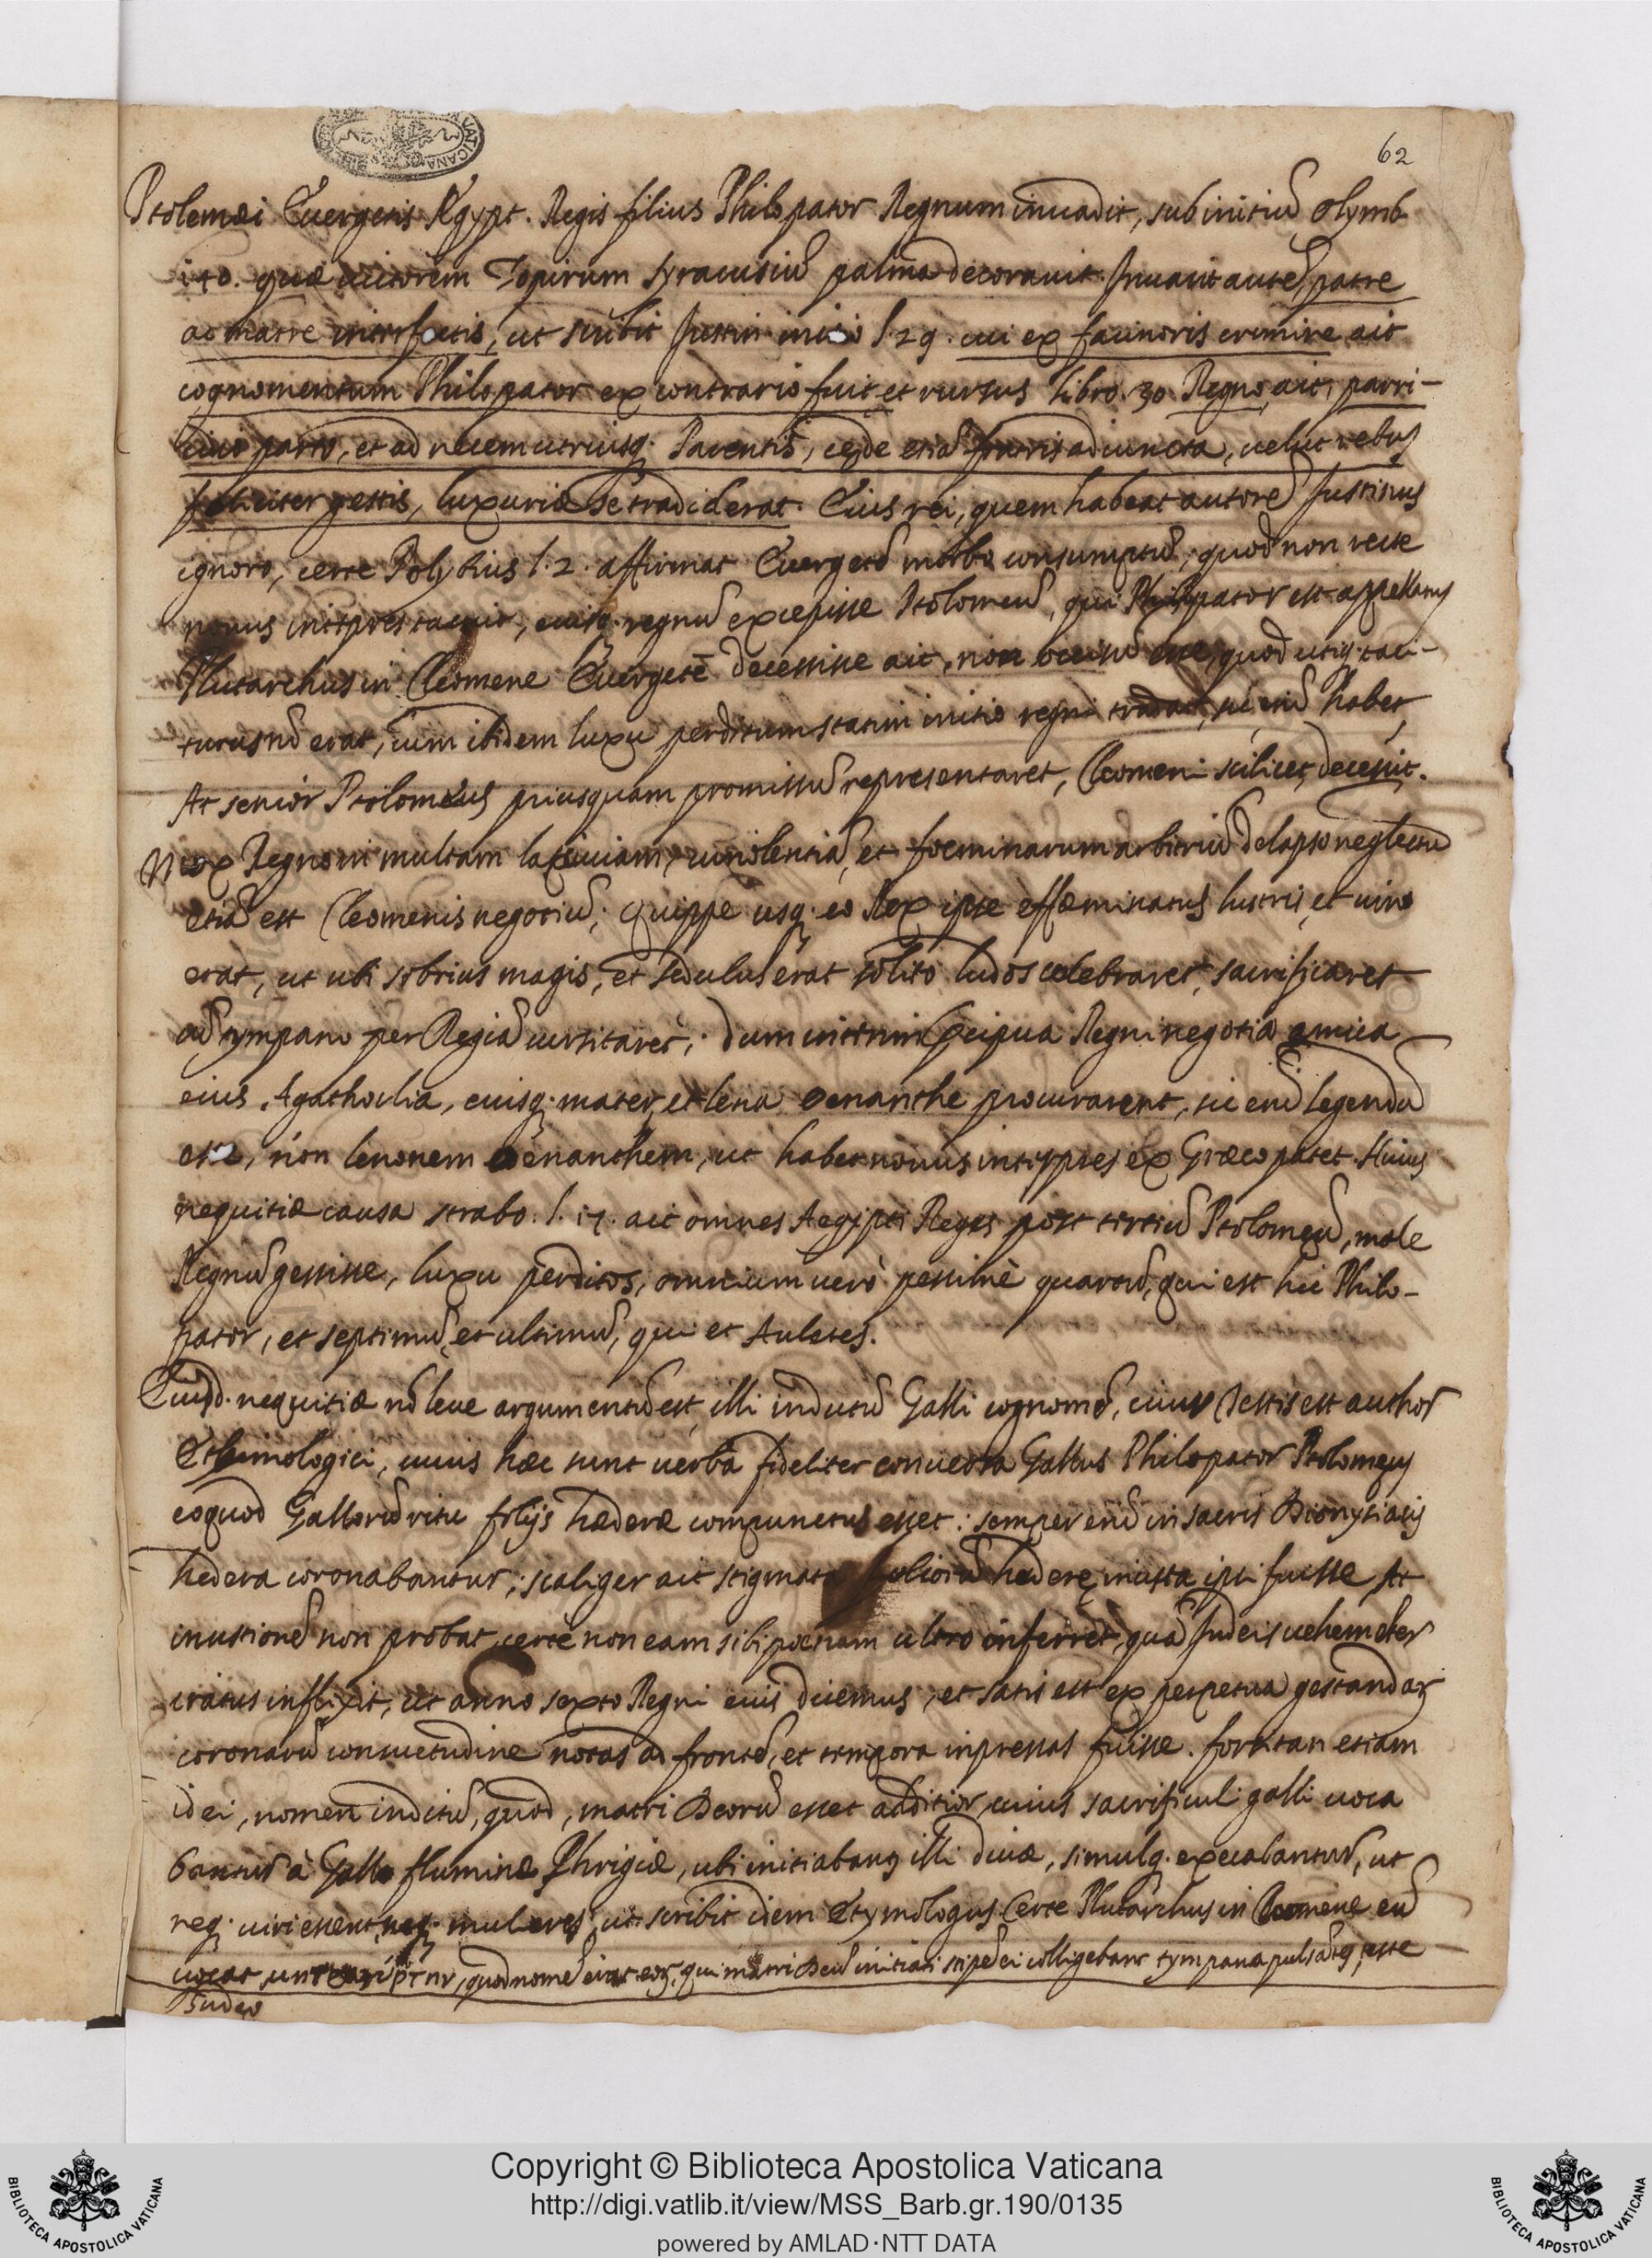 62
Ptolemæi Euergetis Ægypt. Regis filius Philopator Regnum inuadit, sub initiũ olymb
140. quæ uictorem Iopirum syracusiũ palma decorauit. Inuasit autẽ, patre
ac matre interfectis, ut scribit Justin initio l. 29. cui ex facinoris crimine ait
cognomentum Philopator ex contrario fuit et rursus libro. 30. Regno, ait, parri-
cidio parto, et ad necem utriusq. Parentis, cęde etiã fratris adiuncta, uelut rebus
feliciter gestis, luxuriæ se tradiderat. Eius rei, quem habeat autorẽ Justinus
ignoro, certe Polybius l. 2. affirmat Euergetẽ morbo consumptũ, quod non recte
nouus interpres tacuit, eiusq. regnũ excepisse Ptolomeũ, qui Philopator est appellatus
Plutarchus in Cleomene Euergetẽ decessisse ait, non occisũ esse, quod utiq. taci-
turus nõ erat, cum ibidem luxu perditum statim initio regni tradat, sic enĩ habet
At senior Ptolomæus priusquam promissũ representaret, Cleomeni scilicet, decessit.
Mox Regno in multam lasciuiam, uinolentiã, et foeminarum arbitriũ delapso neglectũ
etiã est Cleomenis negotiũ; quippe usq. eo Rex ipse effæminatus lustris, et uino
erat, ut ubi sobrius magis, et sedulus erat solito ludos celebraret, sacrificaret
cũ tympano per Regiã cursitaret; dum interim præcipua Regni negotia amica
eius Agathoclia, eiusq. mater, et lena Oenanthe procurarent, sic enĩ legendũ
est, non lenonem Oenanthem, ut habet nouus interpres ex Græco patet. Huius
nequitiæ causa strabo. l. 17. ait omnes Aegypti Reges post tertiũ Ptolomeũ, male
Regnũ gessisse, luxu perditos, omnium uerò pessimè quartũ, qui est hic Philo-
pator, et septimũ, et ultimũ, qui et Auletes.
Eiusd. nequitiæ nõ leue argumentũ est, illi inditũ Galli cognomẽ, cuius testis est author
Ethimologici, cuius hæc sunt uerba fideliter conuersa Gallus Philopator Ptolomęus
eoquod Gallorũ ritu folijs hæderæ compunctus esset: semper enĩ in sacris Dionysiacis
hedera coronabantur; scaliger ait stigmata foliorũ hederę inusta ipsi fuisse At
inustionẽ non probat, certe non eam sibi poenam ultro inferret, quã Judeis uehemẽter
iratus inflixit, ut anno sexto Regni eius dicemus, et satis est ex perpetua gestandar
coronarũ consuetudine notas ad frontẽ, et tempora inpressas fuisse. forsitan etiam
id ei, nomen inditũ, quod, matri Deorũ esset addictior, cuius sacrificuli galli uoca
bantur à Gallo flumine Phrigiæ, ubi initiabant illi diuæ, simulq. execabantur, ut
neq. uiri essent, neq. mulieres, ut scribit idem Etymologus Certe Plutarchus in Cleomene eũ
uocat μητραγύρτην, quod nomẽ erat eor, qui matri Deũ initiati stipẽ ei colligebant tympana pulsãtes, teste
Budęo
Copyright © Biblioteca Apostolica Vaticana
http://digi.vatlib.it/view/MSS_Barb.gr.190/0135
powered by AMLAD·NTT DATA
BIBLIOTECA APOSTOLICA VATICANA
BIBLIOTECA APOSTOLICA VATICANA